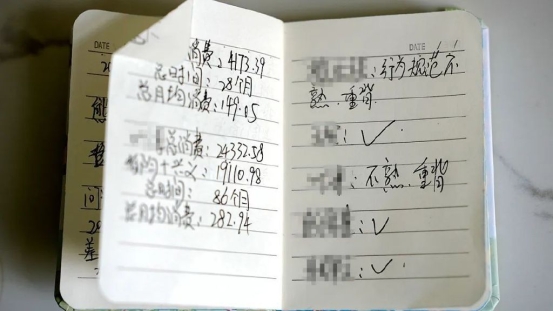 DATE
20
问
20
差
消费:4173.39
总时间:28个月
总月均消费:149.05
总消费:24332.58
:19110.98
总时间:86个月
总月均消费:282.94
DATE
:行为规范不
熟,重背
:✓
:不熟,重背
:✓
:✓